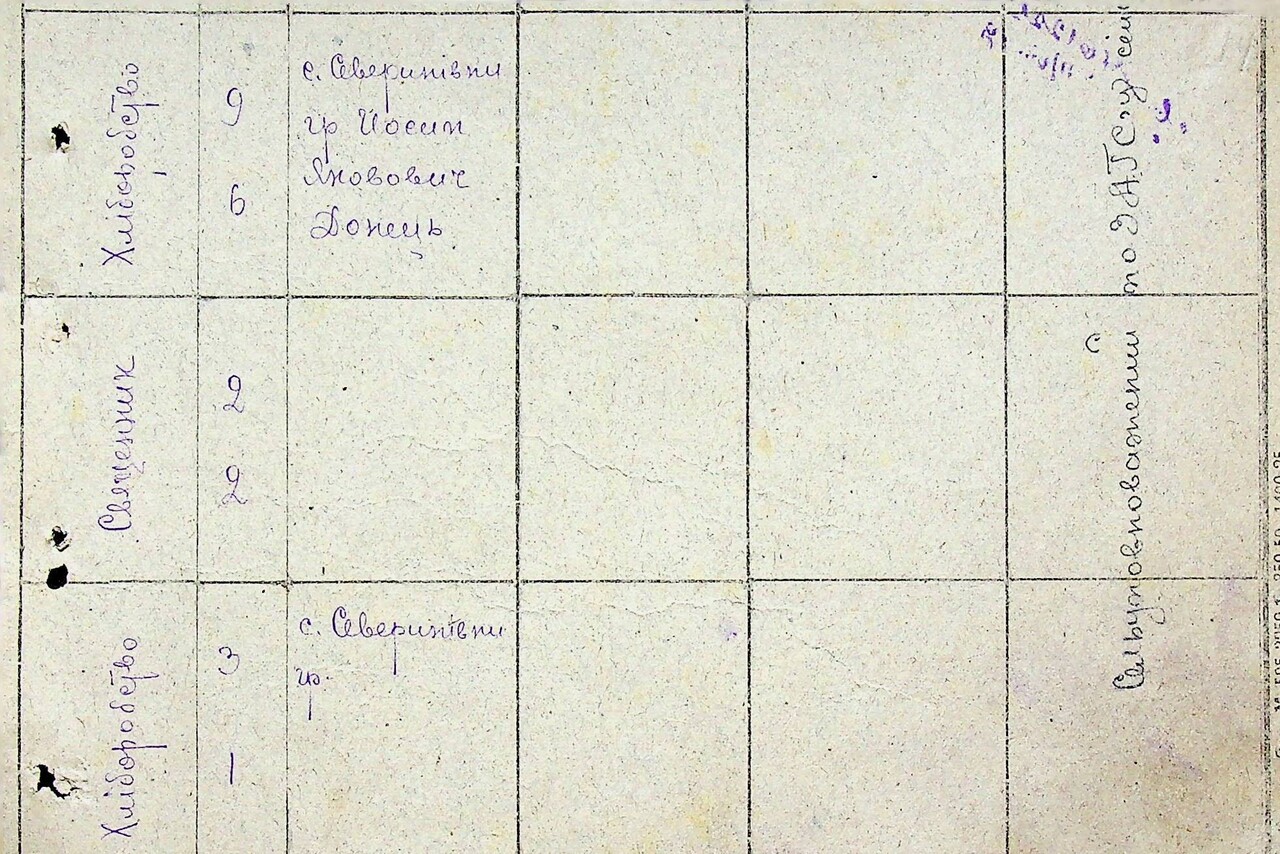 Хліборобство
9
6
с. Северинівки
гр Йосип
Яковович
Донець
Священник
2
2
Хліборобство
3
1
с. Северинівки
гр.
Сільуповноважений по ЗАГС-у